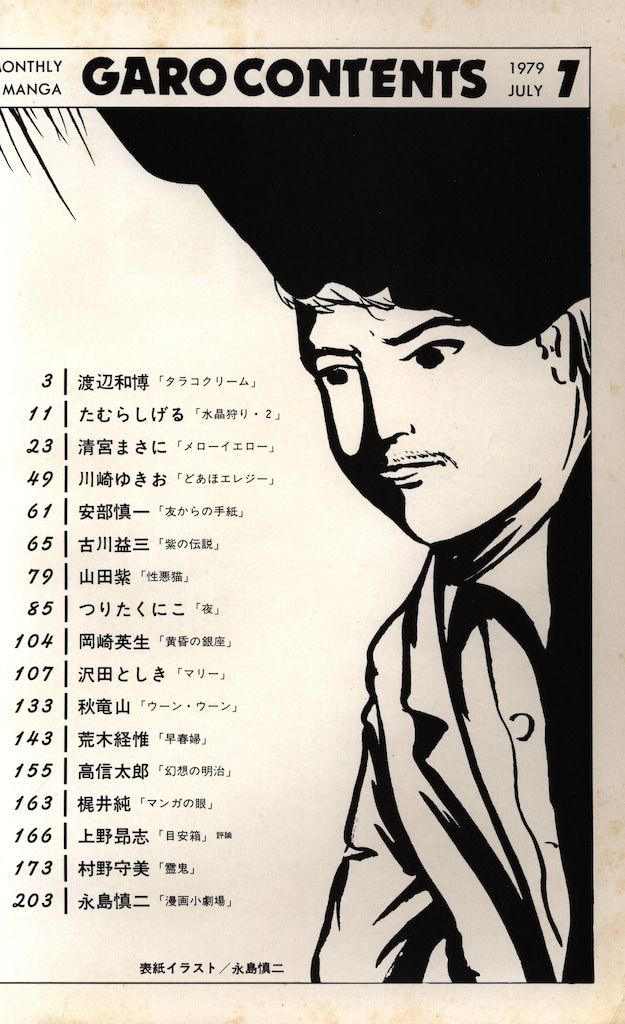 MONTHLY
MANGA
GARO CONTENTS
1979
JULY
7
3 渡辺和博「タラコクリーム」
11 たむらしげる「水晶狩り・2」
23 清宮まさに「メローイエロー」
49 川崎ゆきお「どあほエレジー」
61 安部慎一「友からの手紙」
65 古川益三「紫の伝説」
79 山田紫「性悪猫」
85 つりたくにこ「夜」
104 岡崎英生「黄昏の銀座」
107 沢田としき「マリー」
133 秋竜山「ウーン・ウーン」
143 荒木経惟「早春婦」
155 高信太郎「幻想の明治」
163 梶井純「マンガの眼」
166 上野昻志「目安箱」評論
173 村野守美「霊鬼」
203 永島慎二「漫画小劇場」
表紙イラスト／永島慎二